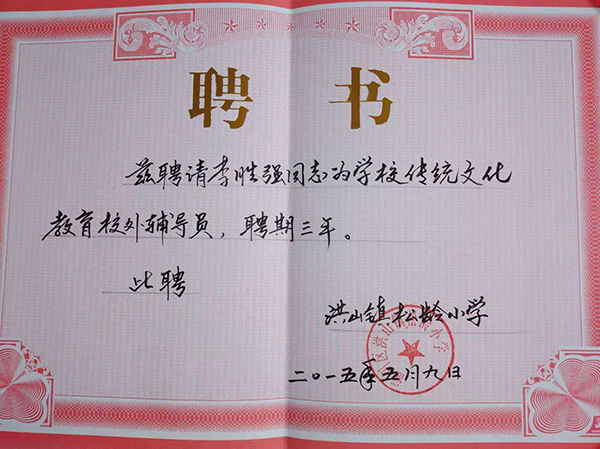 聘 书
兹聘请李胜强同志为学校传统文化
教育校外辅导员，聘期三年。
此聘
洪山镇松龄小学
二〇一五年五月九日